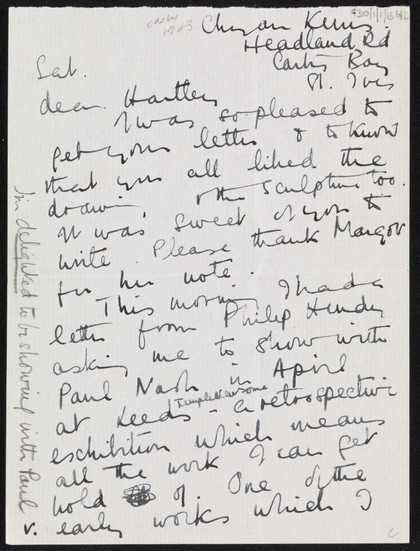 early 1943
Chyan Kerris
Headland Rd
Carbis Bay
St. Ives
Sat.
dear Hartley
I was so pleased to
get your letter & to know
that you all liked the
drawing, & the sculpture too.
It was sweet of you to
write. Please thank Margot
for her note.
This morning I had a
letter from Philip Hendy
asking me to show with
Paul Nash in April
at Leeds – a retrospective
Temple Newsome
exhibition which means
all the work I can get
hold of. One of the
early works which I
I'm delighted to be showing with Paul
v.